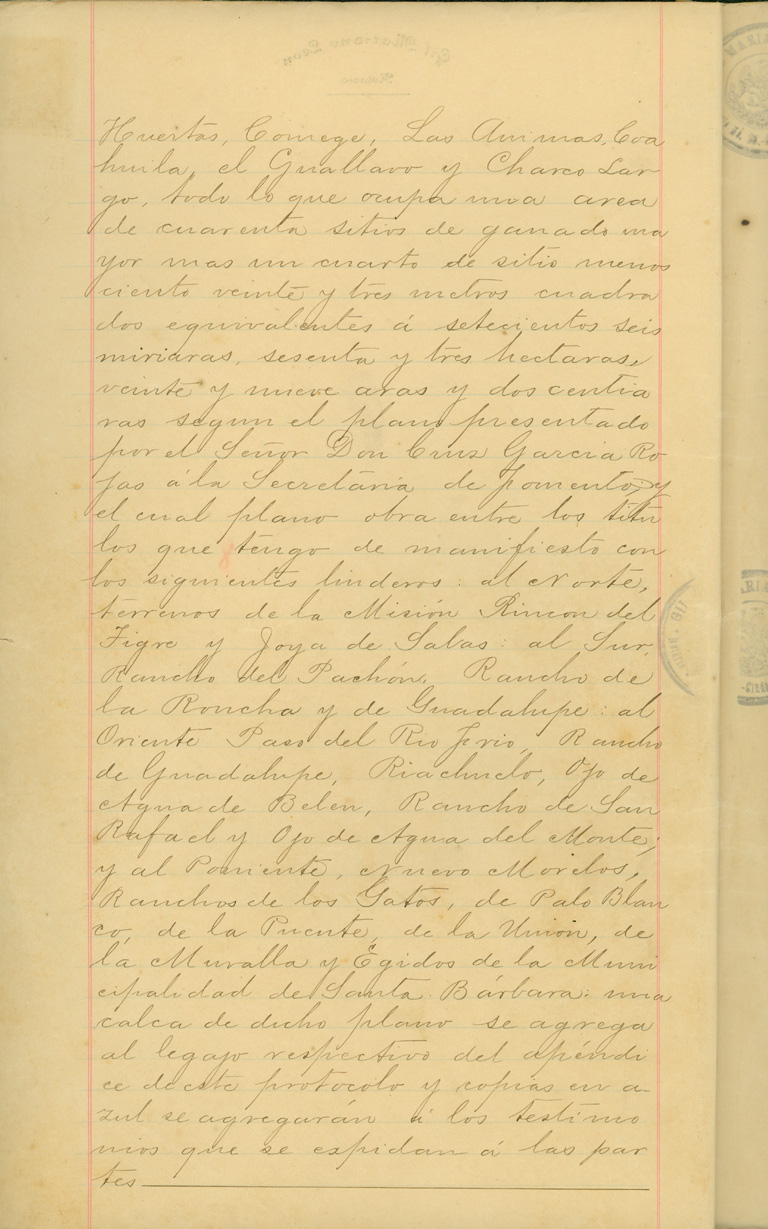 Huertas, Comege, Las Animas, Coa
huila, el Guallavo y Charco Lar
go, todo lo que ocupa una area
de cuarenta sitios de ganado ma
yor mas un cuarto de sitio menos
ciento veinte y tres metros cuadra
dos equivalentes á setecientos seis
miriaras, sesenta y tres hectaras,
veinte y nueve aras y dos centia
ras segun el plano presentado
por el Señor Don Cruz Garcia Ro
jas á la Secretaria de fomento, y
el cual plano obra entre los titu
los que tengo de manifiesto con
los siguientes linderos: al Norte,
terrenos de la Misión Rincon del
Tigre y Joya de Salas: al Sur,
Rancho del Pachón, Rancho de
la Roncha y de Guadalupe: al
Oriente Paso del Rio frio, Rancho
de Guadalupe, Riachuelo, Ojo de
Agua de Belen, Rancho de San
Rafael y Ojo de Agua del Monte;
y al Poniente, Nuevo Morelos,
Ranchos de los Gatos, de Palo Blan
co, de la Puente, de la Unión, de
la Muralla y Egidos de la Muni
cipalidad de Santa Bárbara: una
calca de dicho plano se agrega
al legajo respectivo del apéndi
ce de este protocolo y copias en a-
zul se agregarán á los testimo
nios que se espidan á las par
tes